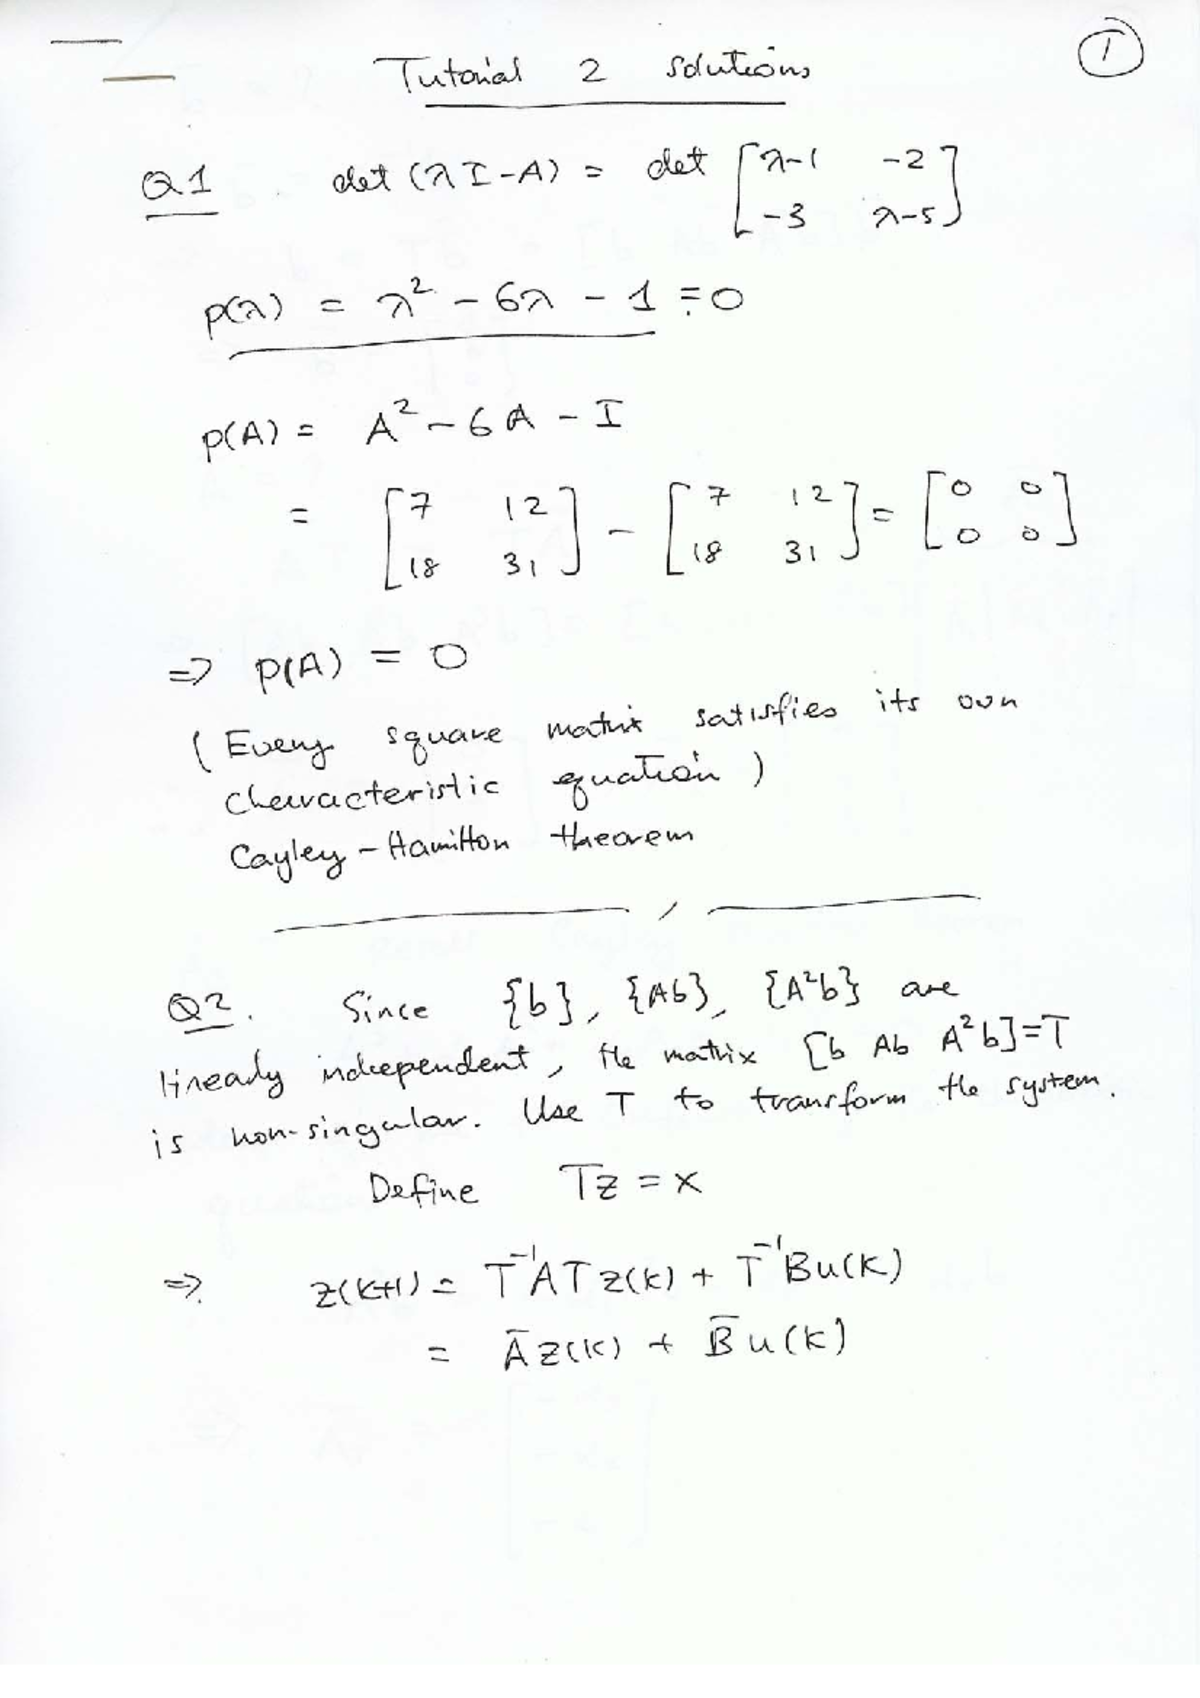 1
Tutorial 2 solutions
Q1 det (λI-A) = det [λ-1 -2
-3 λ-5]
p(λ) = λ² - 6λ - 1 = 0
p(A) = A² - 6A - I
= [7 12
18 31] - [7 12
18 31] = [0 0
0 0]
=> p(A) = 0
(Every square matrix satisfies its own
characteristic equation)
Cayley-Hamilton theorem
Q2. Since {b}, {Ab}, {A²b} are
linearly independent, the matrix [b Ab A²b]=T
is non-singular. Use T to transform the system.
Define Tz = x
=> z(k+1) = T⁻¹ATz(k) + T⁻¹Bu(k)
= Āz(k) + B̄u(k)